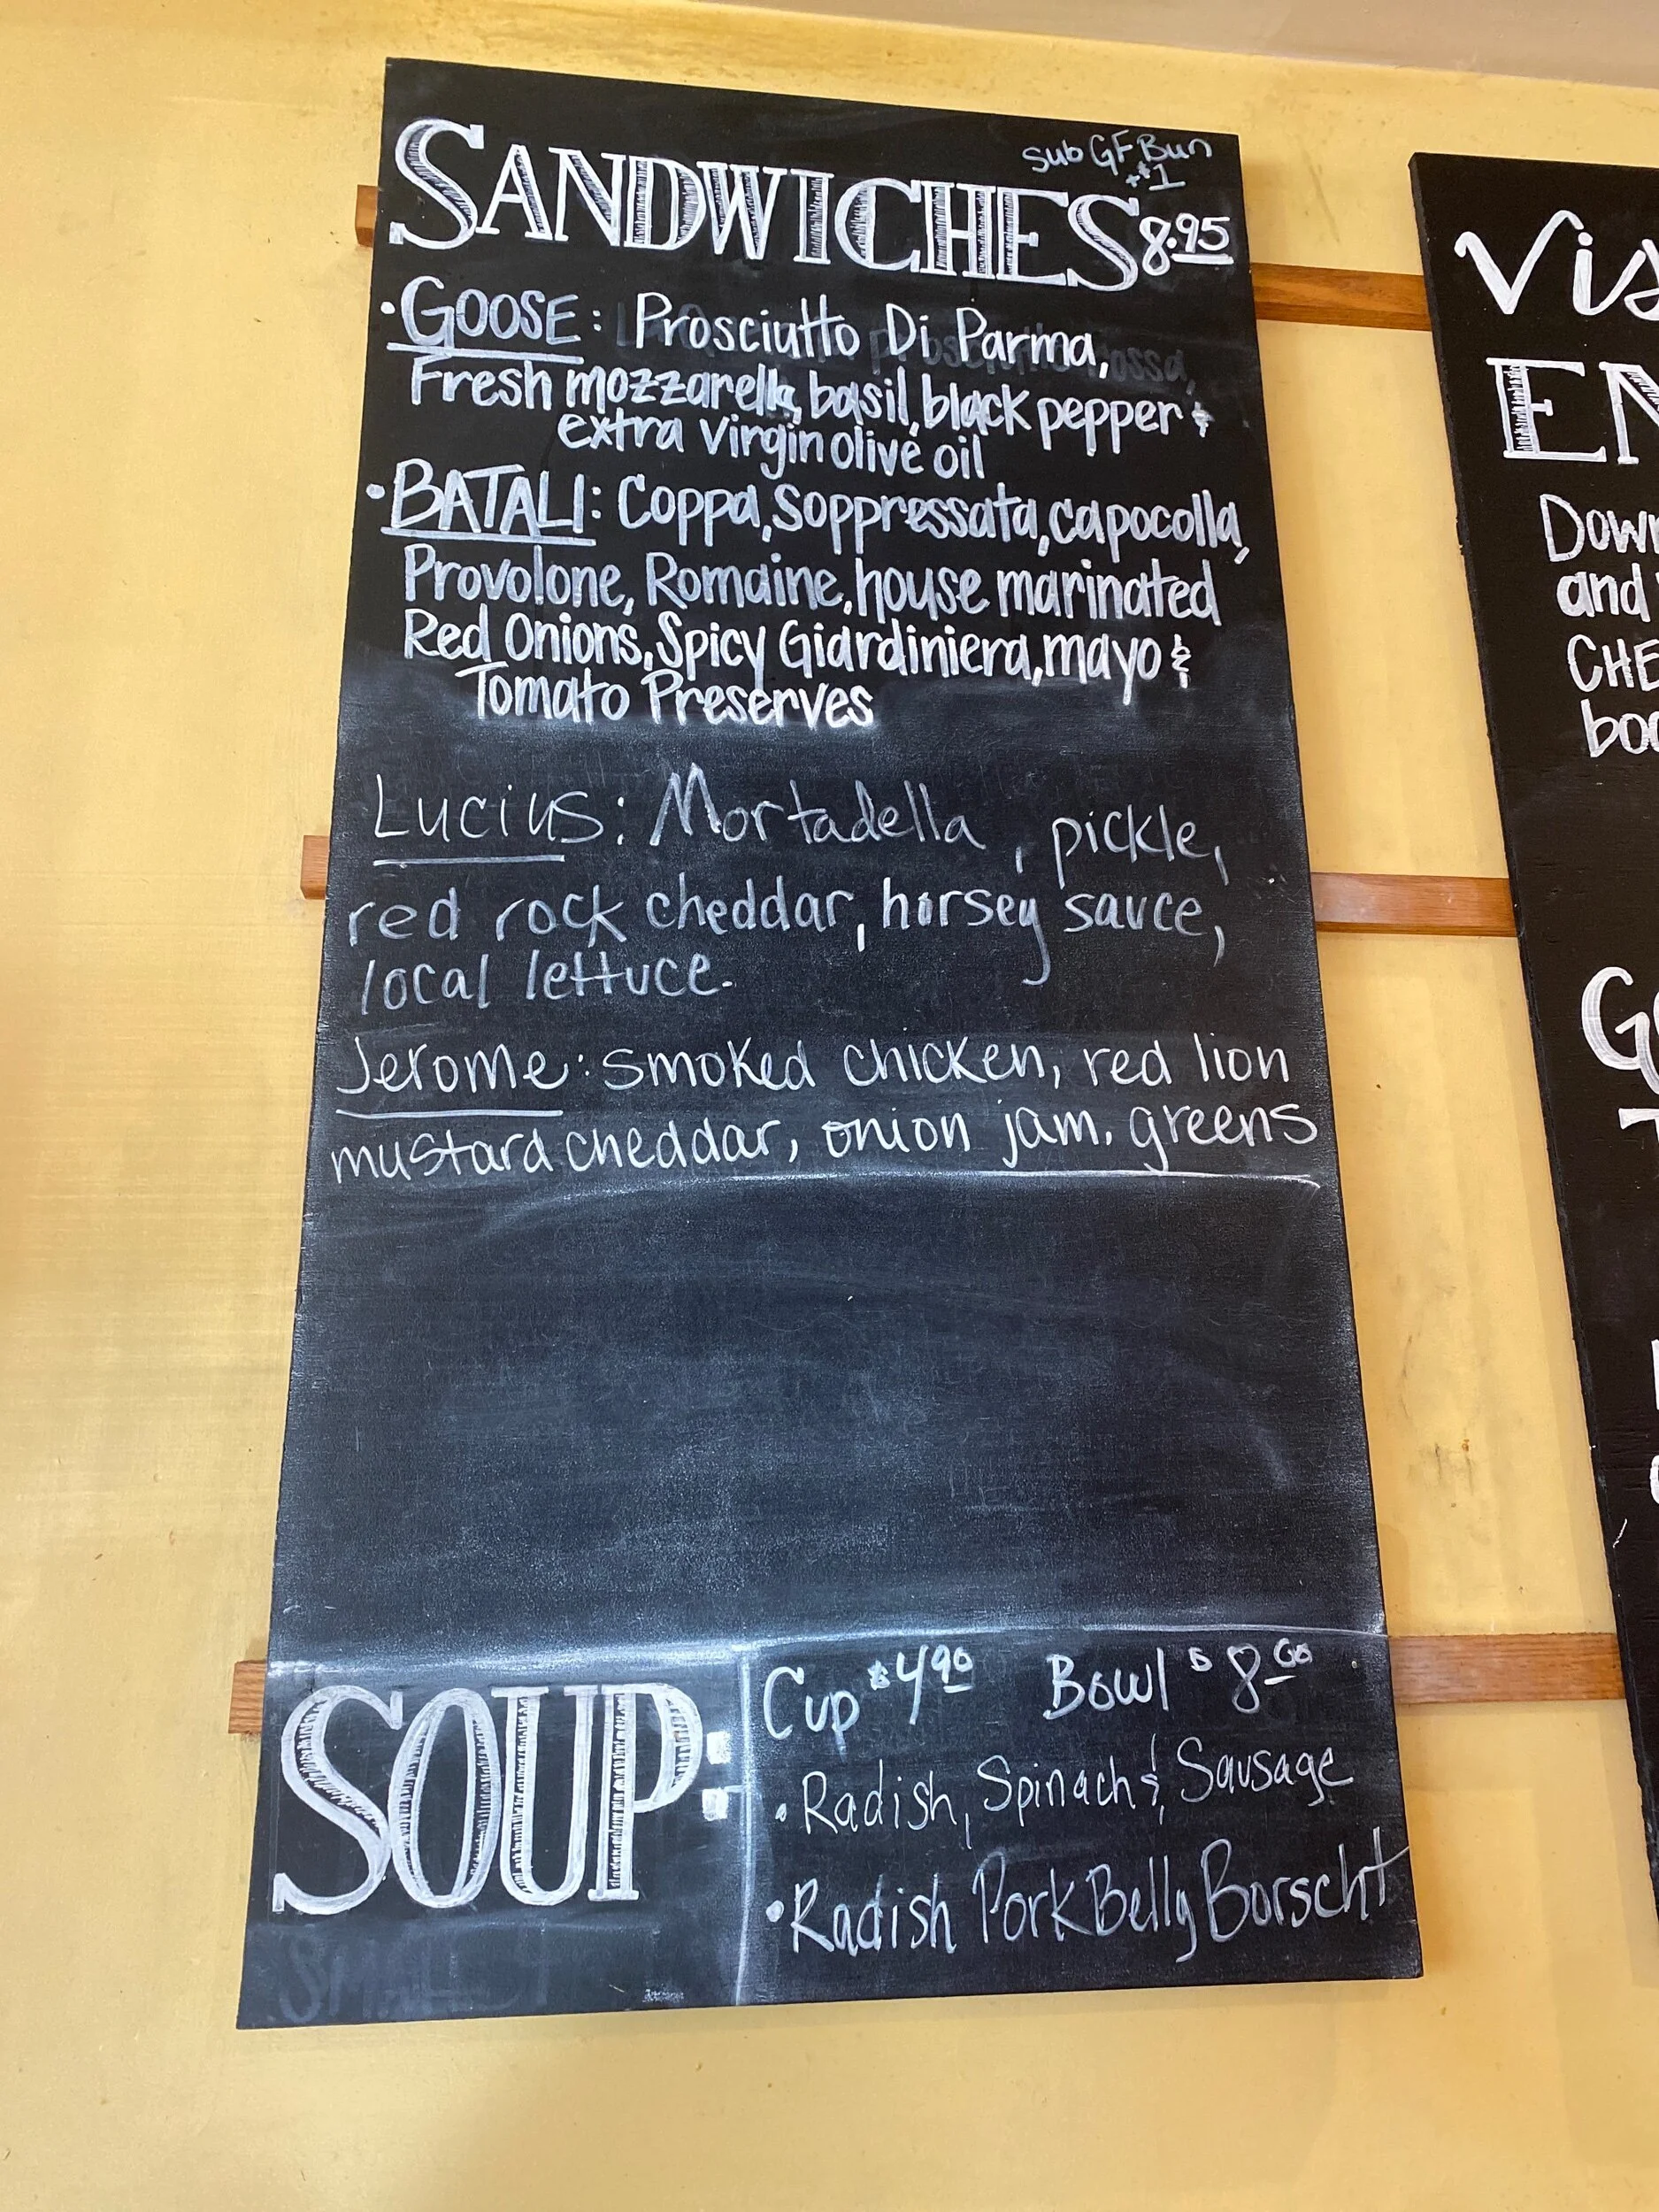 sub GF Bun
+$1
SANDWICHES 8.95
• GOOSE: Prosciutto Di Parma,
Fresh mozzarella, basil, black pepper &
extra virgin olive oil
• BATALI: Coppa, Soppressata, capocolla,
Provolone, Romaine, house marinated
Red Onions, Spicy Giardiniera, mayo &
Tomato Preserves
Lucius: Mortadella, pickle,
red rock cheddar, horsey sauce,
local lettuce.
Jerome: smoked chicken, red lion
mustard cheddar, onion jam, greens
SOUP:
Cup $4.90 Bowl $8.00
• Radish, Spinach & Sausage
• Radish Pork Belly Borscht
and